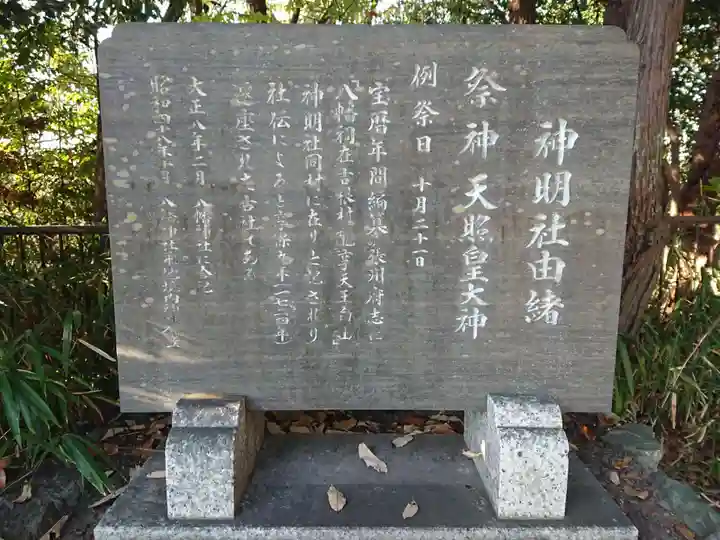 神明社由緒
祭神 天照皇大神
例祭日 十月二十一日
宝暦年間編纂の張州府志に
「八幡祠在吉根村
神明社同村に在りと記されり
社伝によると享保九年(一七二四年
遷座された古社である
大正八年二月 八幡神社に合祀
昭和四十八年十月 八幡神社